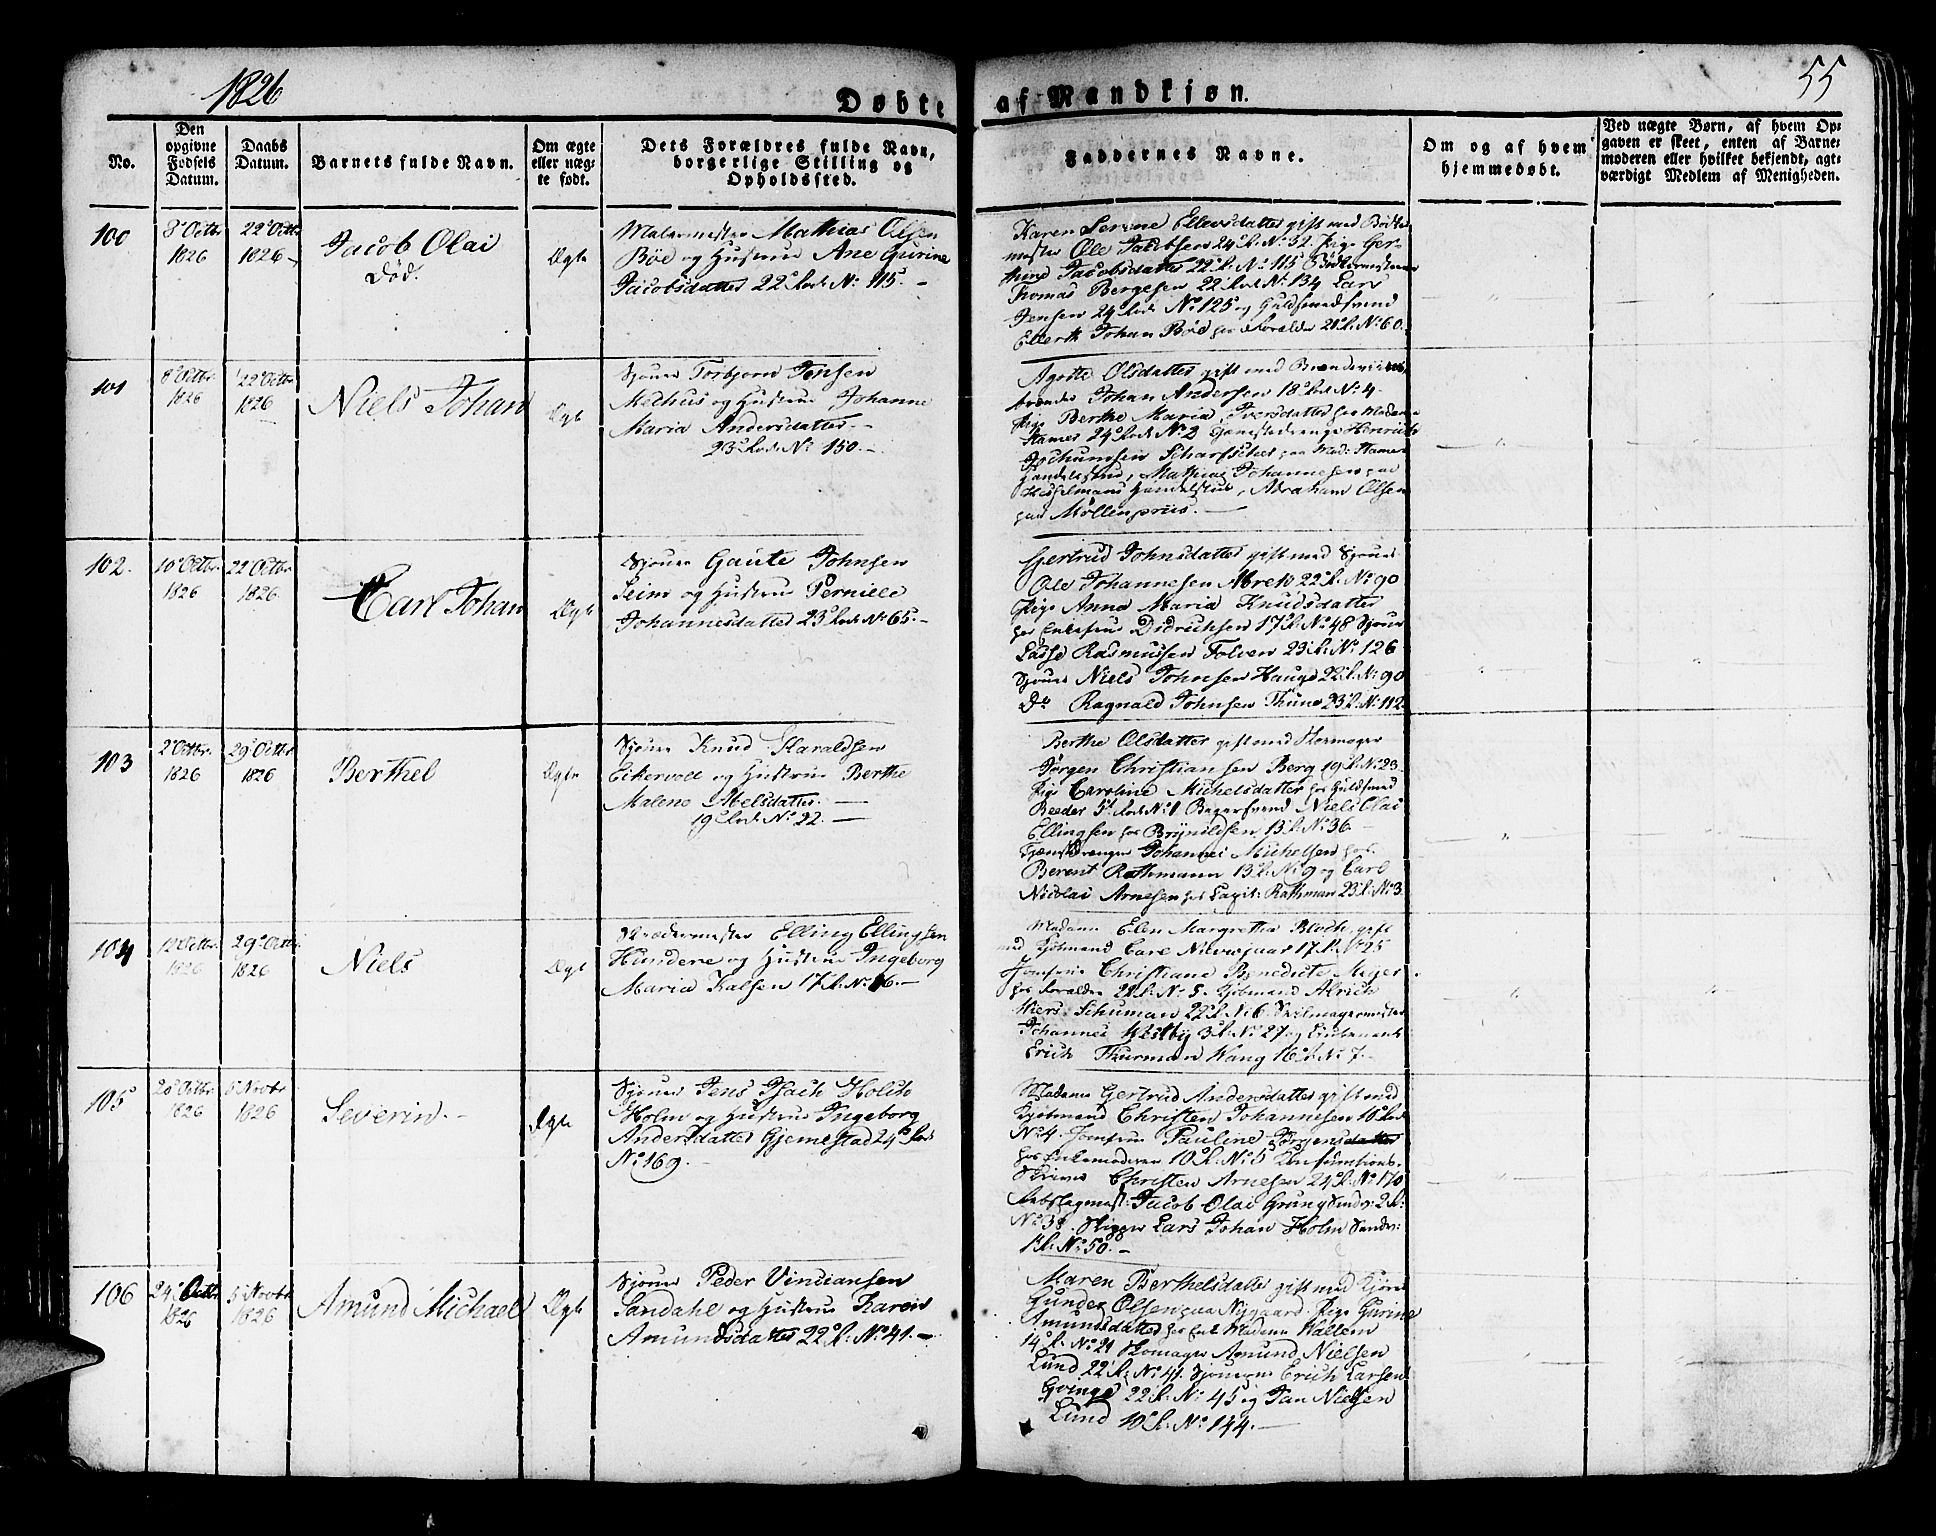 1826
55
Døbte af Mandkjøn.
No.
Den opgivne Fødsels Datum.
Daabs Datum.
Barnets fulde Navn.
Om ægte eller uægte født.
Dets Forældres fulde Navn, borgerlige Stilling og Opholdssted.
Faddernes Navne.
Om og af hvem hjemmedøbt.
Ved uægte Børn, af hvem Opgaven er skeet, enten af Barnemoderen eller hvilket bekjendt, agtværdigt Medlem af Menigheden.
100
8de Octbr 1826
22de Octbr 1826
Jacob Olai
Død.
Ægte
Malermester Mathias Olsen
Böe og Hustrue Ane Gurine
Jacobsdatter 22de Rode No 115.
Karen Serene Ellersdatter gift med Bödker
mester Ole Jacobsen 24 R. No 32. Pige Ger-
thine Jacobsdatter 22 R. No 115 Bödkermester
Thomas Bergesen 22 Rode No 134 Lars
Jensen 24 Rode No 125 og Guldsmedsvend
Ellert Johan Böe hos Forældre 21 R. No 60.
101
8de Octbr 1826
22de Octbr 1826
Niels Johan
Ægte
Sjöuer Torbjörn Jensen
Methus og Hustrue Johanne
Maria Andersdatter.
23de Rode No 150.
Agethe Olsdatter gift med Brændeviins
brænder Johan Andersen 18 Rode No 4
Pige Berthe Maria Iversdatter hos Madame
Stamer 24 Rode No 2
Mathias Johannesen paa
Abraham Olsen
paa Möllenpriis.
102.
10de Octbr. 1826
22 Octbr. 1826
Carl Johan
Ægte
Sjöuer Gaute Johnsen
Seim og Hustrue Pernille
Johannesdatter 23de Rode No 65.
Gjertrud Johnsdatter gift med Sjöuer
Ole Johannesen Abrek 22 R. No 90
Pige Anna Maria Knudsdatter
hos Enkefrue Didrichsen 17 R. No 48 Sjöuer
Lasse Rasmussen Tolven 23 R. No 126
Sjöuer Niels Johnsen Hauge 22 R. No 90
Do Ragnald Johnsen Thune 23 R. No 112
103
2de Octbr. 1826
29de Octbr 1826
Berthel
Ægte
Sjöuer Knud Haraldsen
Eikervold og Hustrue Berthe
Malene Abelsdatter.
19de Rode No 22.
Berthe Olsdatter gift med Skomager
Jörgen Christiansen Berg 19 R. No 23.
Pige Caroline Michelsdatter hos Guldsmed
Reeder 5 Rode No 1 Bagersvend Niels Olai
Ellingsen hos Brynildsen 13 R. No 36
Tjenestdrenger Johannes Michelsen hos
Berent Rothmann 13 R. No 9 og Carl
Nicolai Arnesen hos Rothman 23 R. No 3
104
12 Octbr. 1826
29de Octbr 1826
Niels
Ægte
Skrædermester Elling Ellingsen
Hundere og Hustrue Ingeborg
Maria Kalsen 17 R. No 16.
Madame Elen Margretha Bloch, gift
med Kjöbmand 17 R. No 25
Jomfrue Christiane Benedicte Meyer
hos Forældre 21 R. No 5. Kjöbmand Alrich
Wiers. Schuman 22 R. No 6 Seilmagermester
Johannes Westby 3 R. No 27 og Lieutenant
Erich Thurman Wang 16 R. No 7.
105
20 Octbr. 1826
5 Novbr 1826
Severin.
Ægte
Sjöuer Jens Isach Holst
Holm og Hustrue Ingeborg
Andersdatter Gjemestad 24de Rode
No 169.
Madame Gertrud Andersdatter gift med
Kjöbmand Christen Johannesen 10 Rode
No 4. Jomfrue Pauline Jörgensdatter
hos Enkemoderen 10 R. No 5 Konsumtions.
Skriver Christen Arnesen 24 R. No 170
Jacob Olai Grung Sandv: 2 R:
No 38. Skipper Lars Johan Holm Sandv:
1 R. No 50.
106
24de Octbr 1826
5 Novbr 1826
Amund Michael
Ægte
Sjöuer Peder Vinciansen
Sandahl og Hustrue Karen
Amundsdatter 22de R. No 41.
Maren Berthelsdatter gift med Kjörer
Gunder Olsen paa Nygaard. Pige Gurine
Amundsdatter hos Enke Madame Wallem
14 R. No 21 Skomager Amund Nielsen
Lund 22 R. No 41. Erich Larsen
22 R. No 45 og Jan Nielsen
Lund 10 R. No 144.